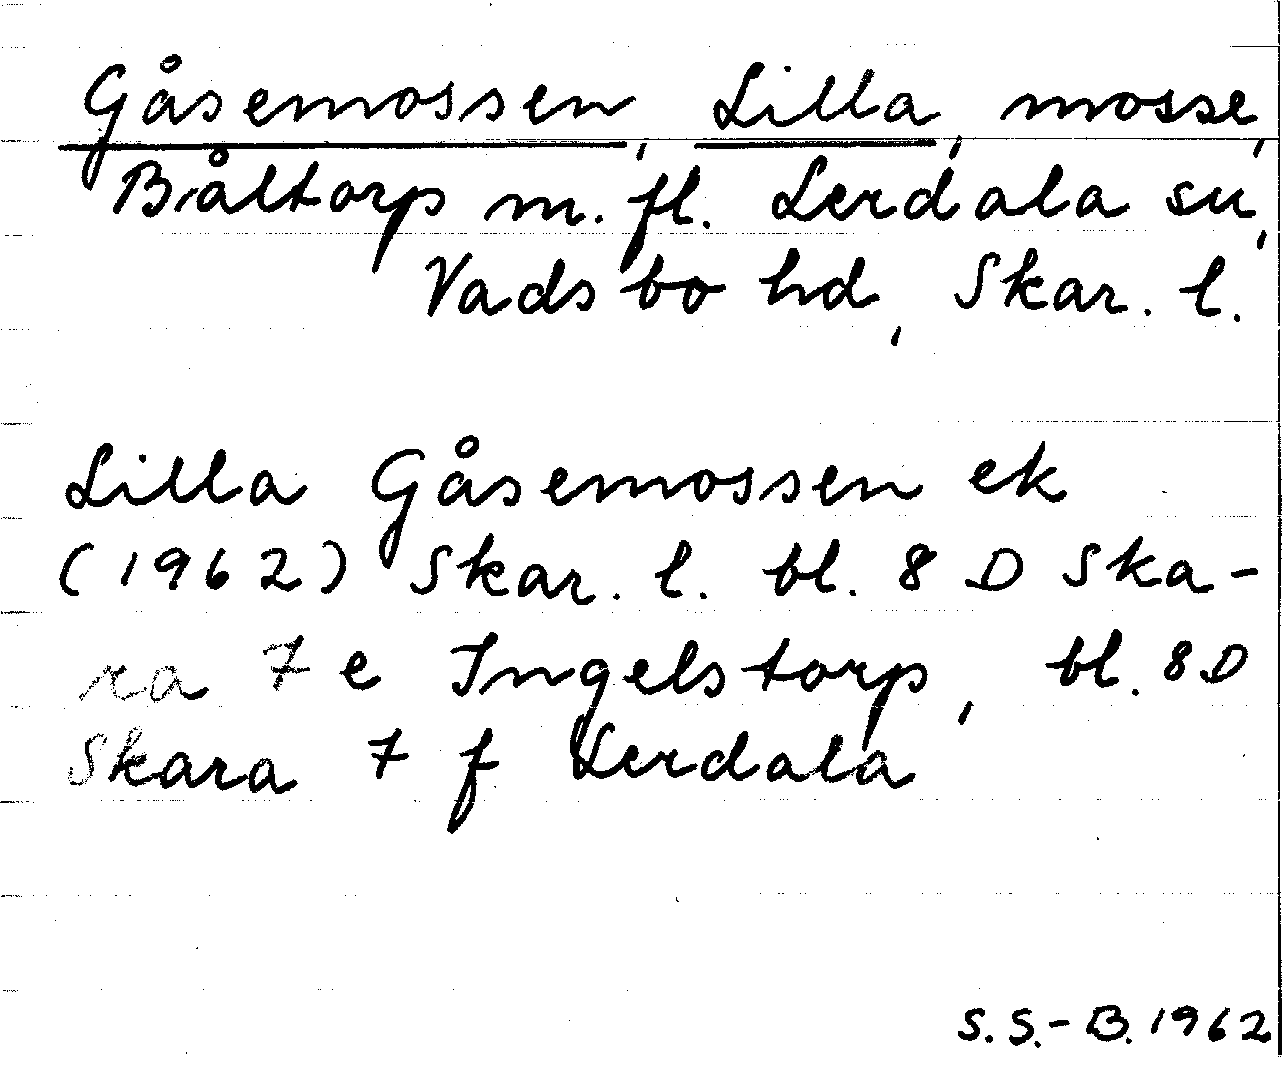 Gåsemossen, Lilla, mosse,
Båltorp m. fl. Lerdala sn,
Vadsbo hd, Skar. l.
Lilla Gåsemossen ek
(1962) Skar. l. bl. 8 D Ska-
ra 7 e Ingelstorp, bl. 8 D
Skara 7 f Lerdala
S. S.-B. 1962